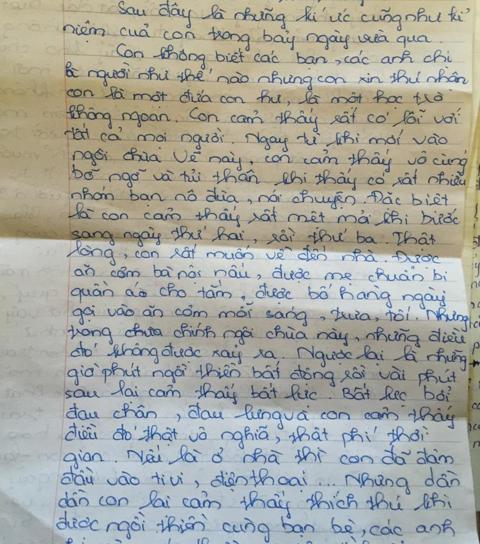 Sau đây là những kí ức cũng như kỉ
niệm của con trong bảy ngày vừa qua.
Con không biết các bạn, các anh chị
là người như thế nào nhưng con xin thú nhận
con là một đứa con hư, là một học trò
không ngoan. Con cảm thấy rất có lỗi với
tất cả mọi người. Ngay từ khi mới vào
ngôi chùa Vẽ này, con cảm thấy vô cùng
bỡ ngỡ và tủi thân khi thấy có rất nhiều
nhóm bạn nô đùa, nói chuyện. Đặc biệt
là con cảm thấy rất mệt mỏi khi bước
sang ngày thứ hai, rồi thứ ba. Thật
lòng, con rất muốn về đến nhà. Được
ăn cơm bà nội nấu, được mẹ chuẩn bị
quần áo cho tắm, được bố hằng ngày
gọi vào ăn cơm mỗi sáng, trưa, tối. Nhưng
trong chùa chính ngôi chùa này, những điều
đó không được xảy ra. Ngược lại là những
giờ phút ngồi thiền bất động rồi vài phút
sau lại cảm thấy bất lực. Bất lực bởi
đau chân, đau lưng và con cảm thấy
điều đó thật vô nghĩa, thật phí thời
gian. Nếu là ở nhà thì con đã đâm
đầu vào tivi, điện thoại... Nhưng dần
dần con lại cảm thấy thích thú khi
được ngồi thiền cùng bạn bè, các anh